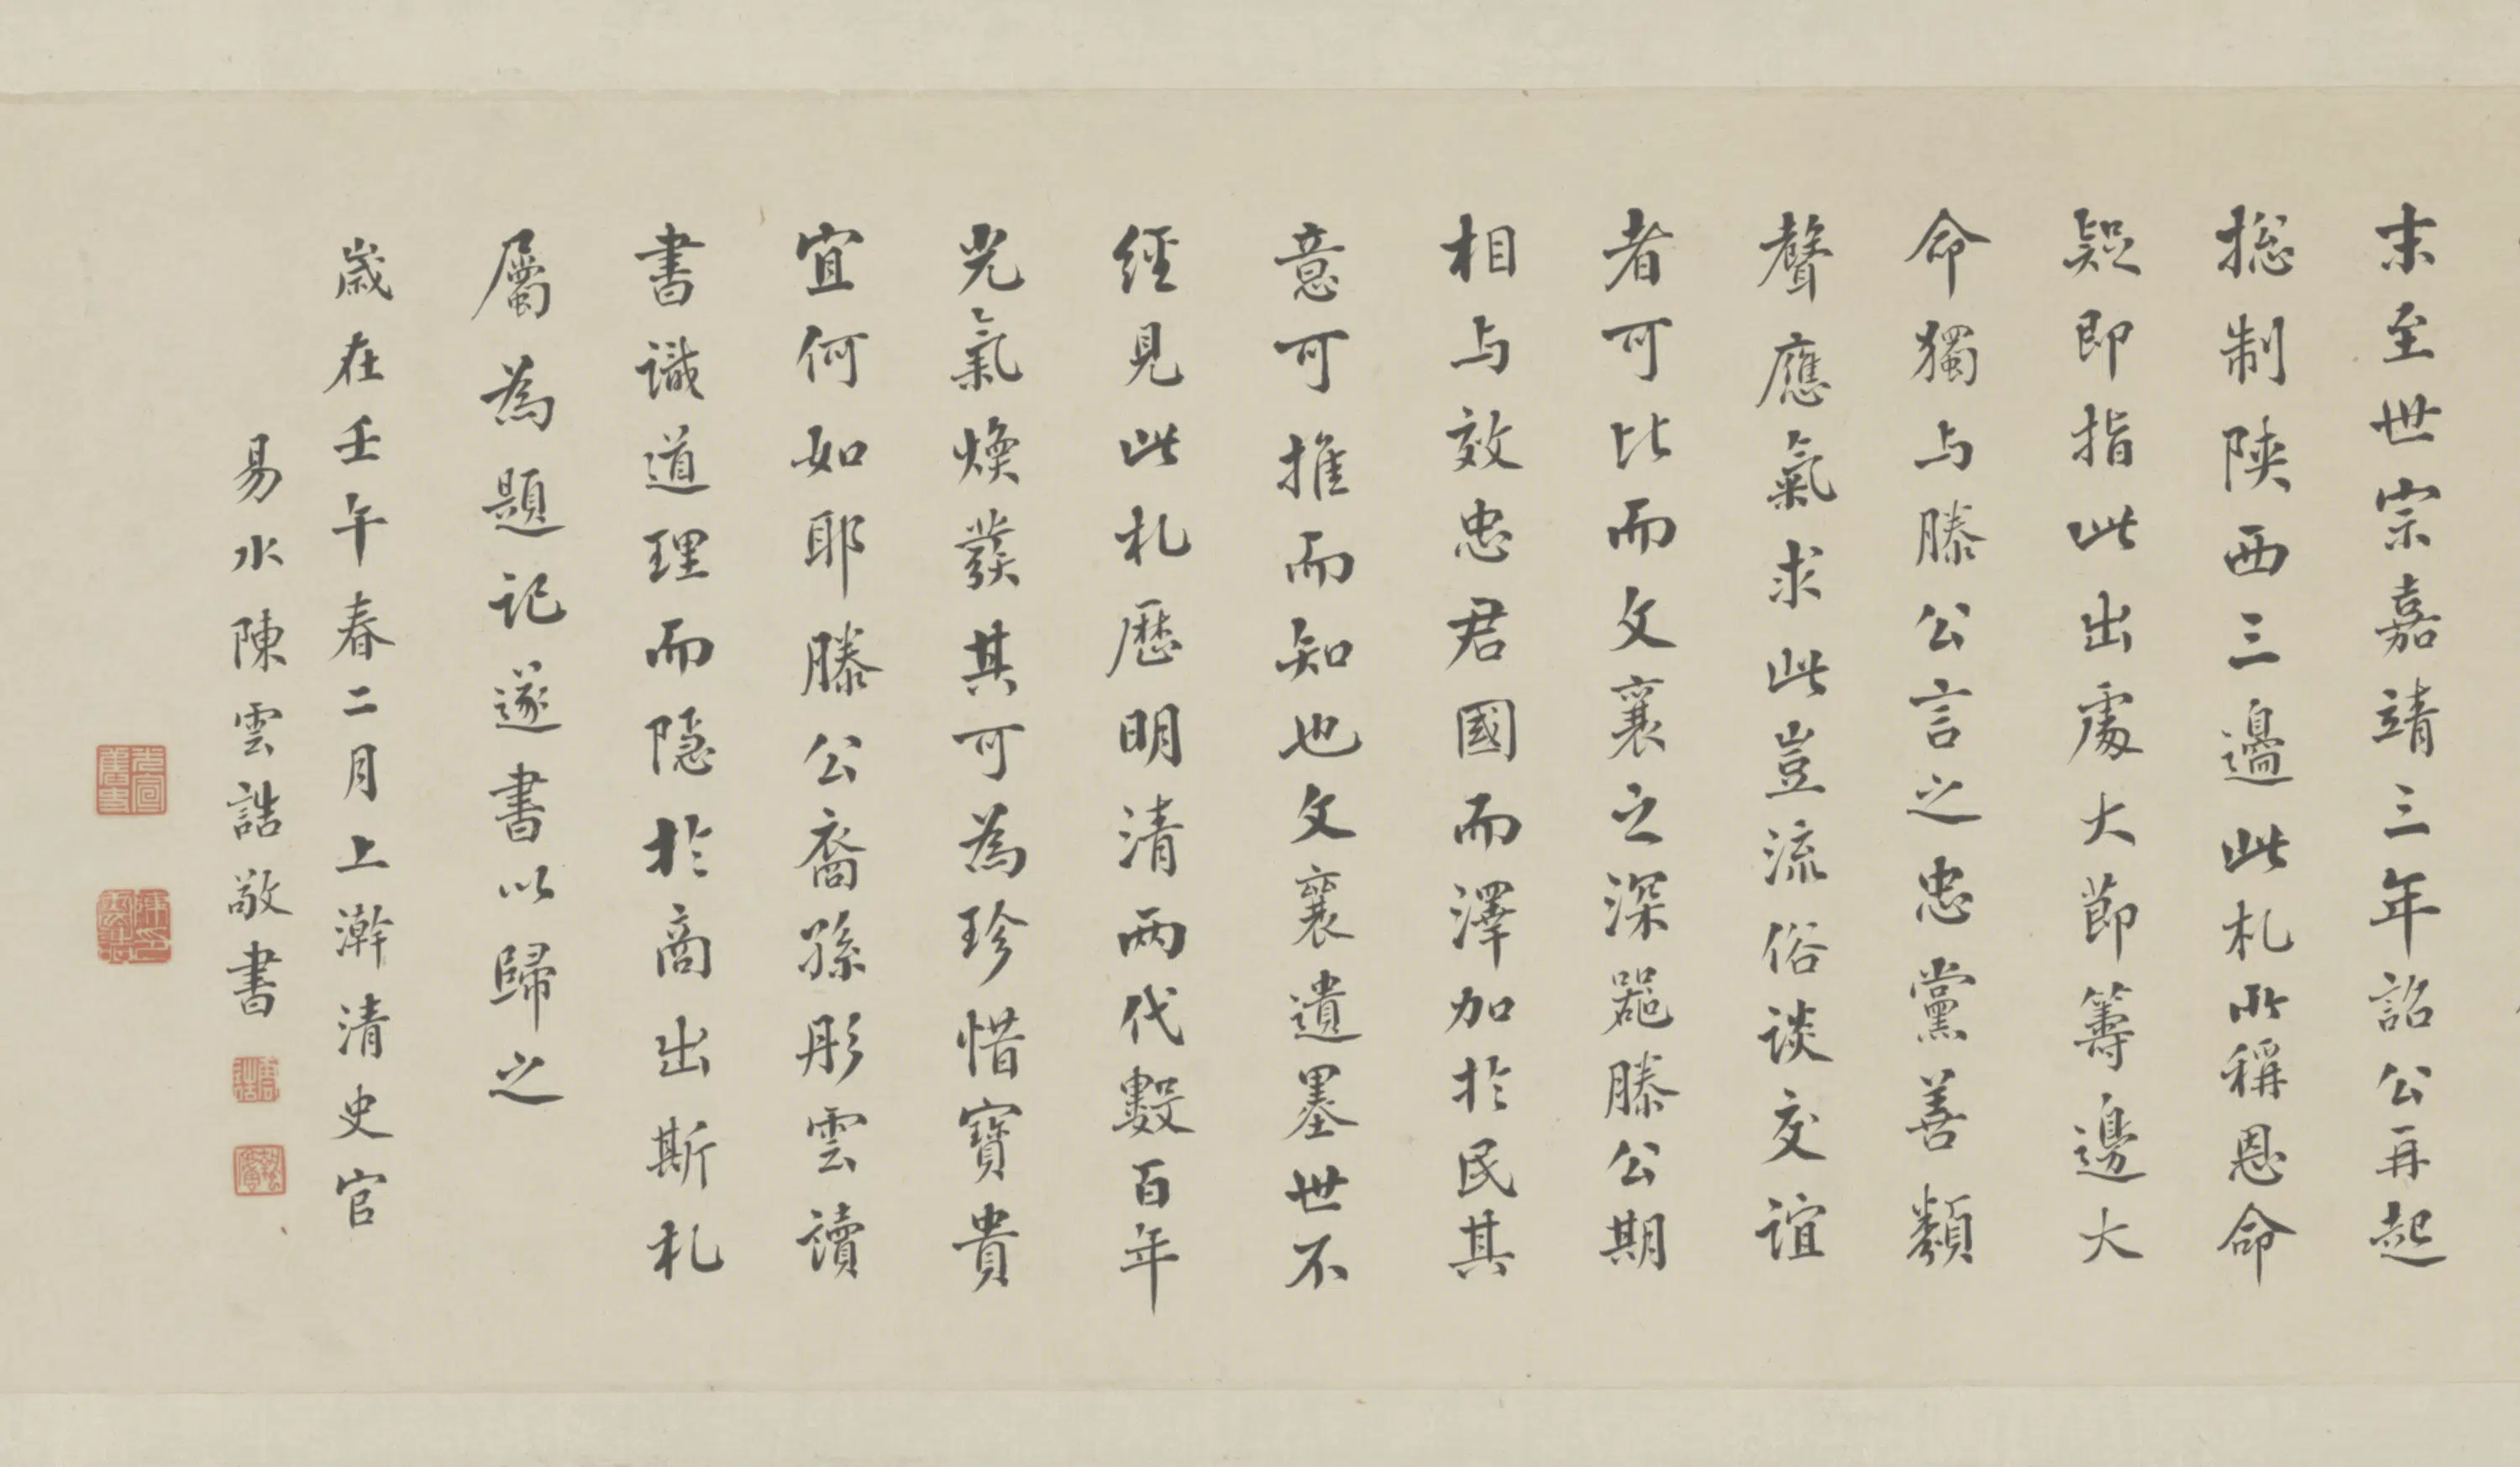 末至世宗嘉靖三年詔公再起
摠制陝西三邊此札所稱恩命
疑即指此出處大節籌邊大
命獨与滕公言之忠黨善類
聲應氣求此豈流俗談交誼
者可比而文襄之深契滕公期
相与效忠君國而澤加於民其
意可推而知也文襄遺墨世不
經見此札歷明清兩代數百年
光氣煥發其可為珍惜寶貴
宜何如耶滕公裔孫彤雲讀
書識道理而隱於商出斯札
屬為題記遂書以歸之
歲在壬午春二月上澣清史官
易水陳雲誥敬書